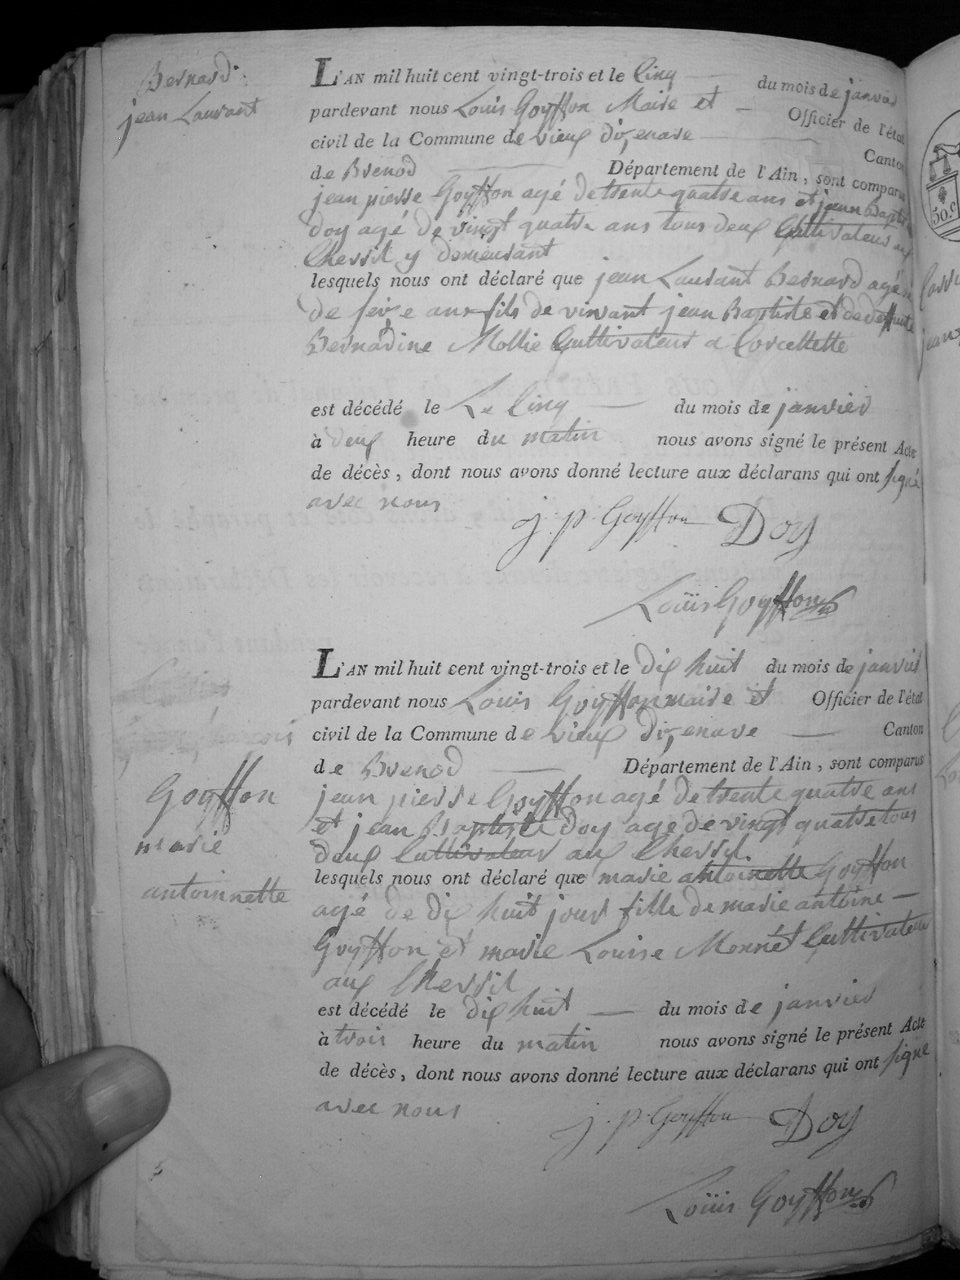 Bernard
jean Laurant
L'AN mil huit cent vingt-trois et le Cinq du mois de janvier
pardevant nous Louis Goyffon Maire et Officier de l'état
civil de la Commune de vieux dizenave Canton
de Brenod Département de l'Ain, sont comparus
jean pierre Goyffon agé de trente quatre ans et jean Baptiste
Doy agé de vingt quatre ans tous deux Cultivateurs aux
Chevril y demeurant
lesquels nous ont déclaré que jean Laurant Bernard agé
de seize ans fils de vivant jean Baptiste et de deffunte
Bernardine Mollie Cultivateurs a Corcellette
est décédé le Le Cinq du mois de janvier
à deux heure du matin nous avons signé le présent Acte
de décès, dont nous avons donné lecture aux déclarans qui ont signé
avec nous
j. p. Goyffon Doy
Louis Goyffon
L'AN mil huit cent vingt-trois et le dix huit du mois de janvier
pardevant nous Louis Goyffon maire et Officier de l'état
civil de la Commune de vieux dizenave Canton
de Brenod Département de l'Ain, sont comparus
Goyffon
marie
antoinnette
jean pierre Goyffon agé de trente quatre ans
et jean Baptiste Doy agé de vingt quatre tous
deux Cultivateurs aux Chevril
lesquels nous ont déclaré que marie antoinette Goyffon
agé de dix huit jours fille de marie antoine
Goyffon et marie Louise Monnét Cultivateurs
aux Chevril
est décédé le dix huit du mois de janvier
à trois heure du matin nous avons signé le présent Acte
de décès, dont nous avons donné lecture aux déclarans qui ont signé
avec nous
j. p. Goyffon Doy
Louis Goyffon